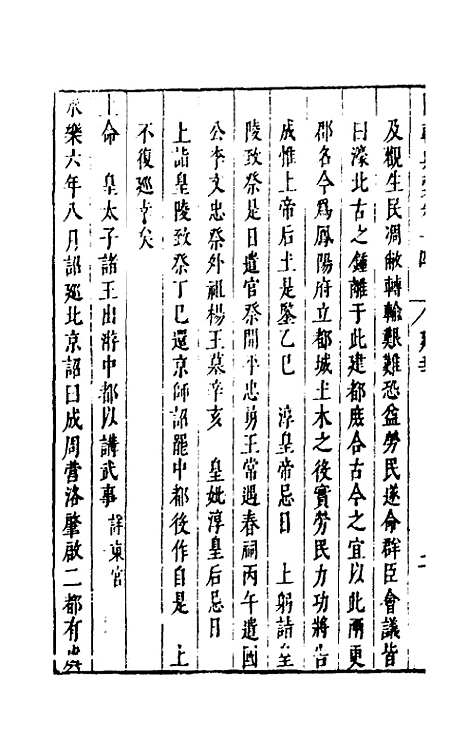 及觀生民凋敝轉輸艱難恐益勞民遂命群臣會議皆
曰濠北古之鍾離于此建都庶合古今之宜以此兩更
郡名今為鳳陽府立都城土木之後實勞民力功將告
成惟上帝后土是鑒乙巳　淳皇帝忌日　上躬詣皇
陵致祭是日遣官祭開平忠勇王常遇春祠丙午遣國
公李文忠祭外祖楊王墓辛亥　皇妣淳皇后忌日
上詣皇陵致祭丁巳還京師詔罷中都後作自是　上
不復廵幸矣
上命　皇太子諸王出游中都以講武事詳東宫
永樂六年八月詔廵北京詔曰成周營洛肇啟二都有